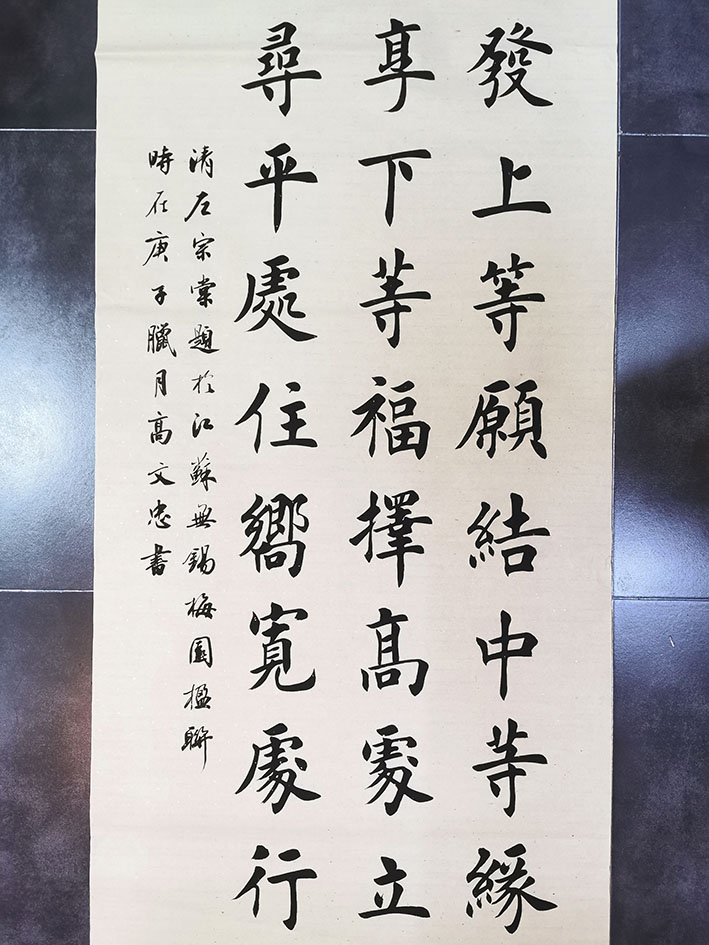 發上等願結中等緣
享下等福擇高處立
尋平處住嚮寬處行
清左宗棠題於江蘇無錫梅園楹聯
時在庚子臘月高文忠書